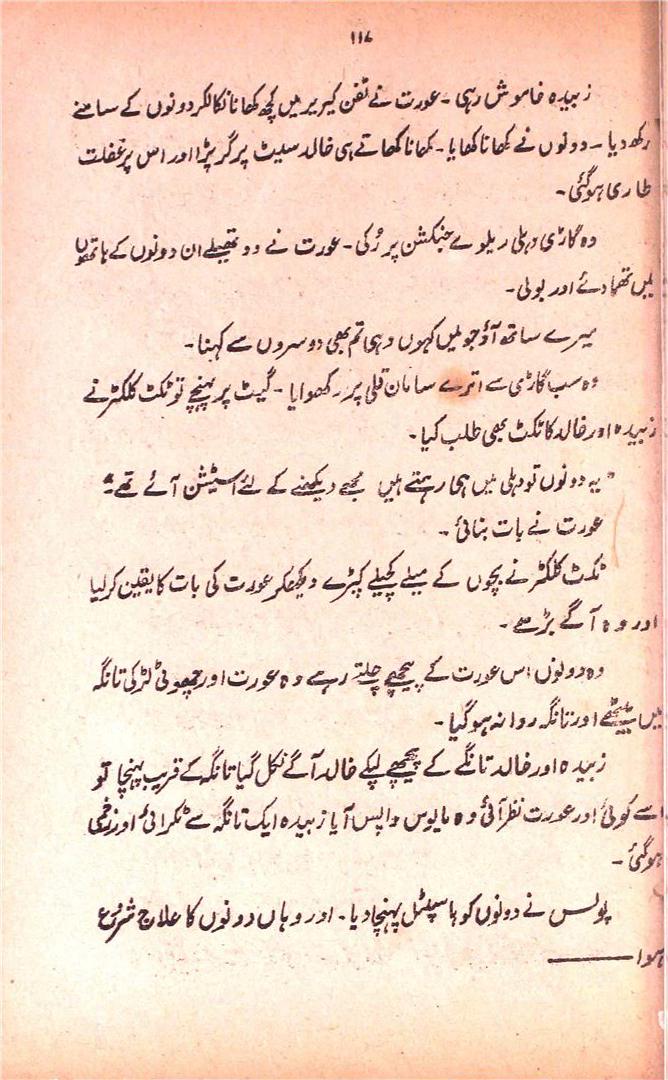 ۱۱۷
زبیدہ خاموش رہی ۔ عورت نے ٹفن کیریر میں کچھ کھانا نکالکر دونوں کے سامنے
رکھدیا ۔ دونوں نے کھانا کھایا ۔ کھانا کھاتے ہی خالد سیٹ پر گر پڑا اور اس پر غفلت
طاری ہوگئی ۔
وہ گاڑی دہلی ریلوے جنکشن پر رُکی ۔ عورت نے دو تھیلے ان دونوں کے ہاتھوں
میں تھما دئے اور بولی ۔
میرے ساتھ آؤ جو میں کہوں وہی تم بھی دوسروں سے کہنا ۔
وہ سب گاڑی سے اترے سامان قلی پر رکھوایا ۔ گیٹ پر پہنچے تو ٹکٹ کلکٹر نے
زبیدہ اور خالد کا ٹکٹ بھی طلب کیا ۔
" یہ دونوں تو دہلی میں ہی رہتے ہیں مجھے دیکھنے کے لئے اسٹیشن آئے تھے ۔"
عورت نے بات بنائی ۔
ٹکٹ کلکٹر نے بچوں کے میلے کچیلے کپڑے دیکھکر عورت کی بات کا یقین کرلیا
اور وہ آگے بڑھے ۔
وہ دونوں اس عورت کے پیچھے چلتے رہے وہ عورت اور چھوٹی لڑکی تانگہ
میں بیٹھے اور تانگہ روانہ ہوگیا ۔
زبیدہ اور خالد تانگے کے پیچھے لپکے خالد آگے نکل گیا تانگہ کے قریب پہنچا تو
اسے کوئی اور عورت نظر آئی وہ مایوس واپس آیا زبیدہ ایک تانگہ سے ٹکرائی اور زخمی
ہوگئی ۔
پولس نے دونوں کو ہاسپٹل پہنچا دیا ۔ اور وہاں دونوں کا علاج شروع
ہوا ———